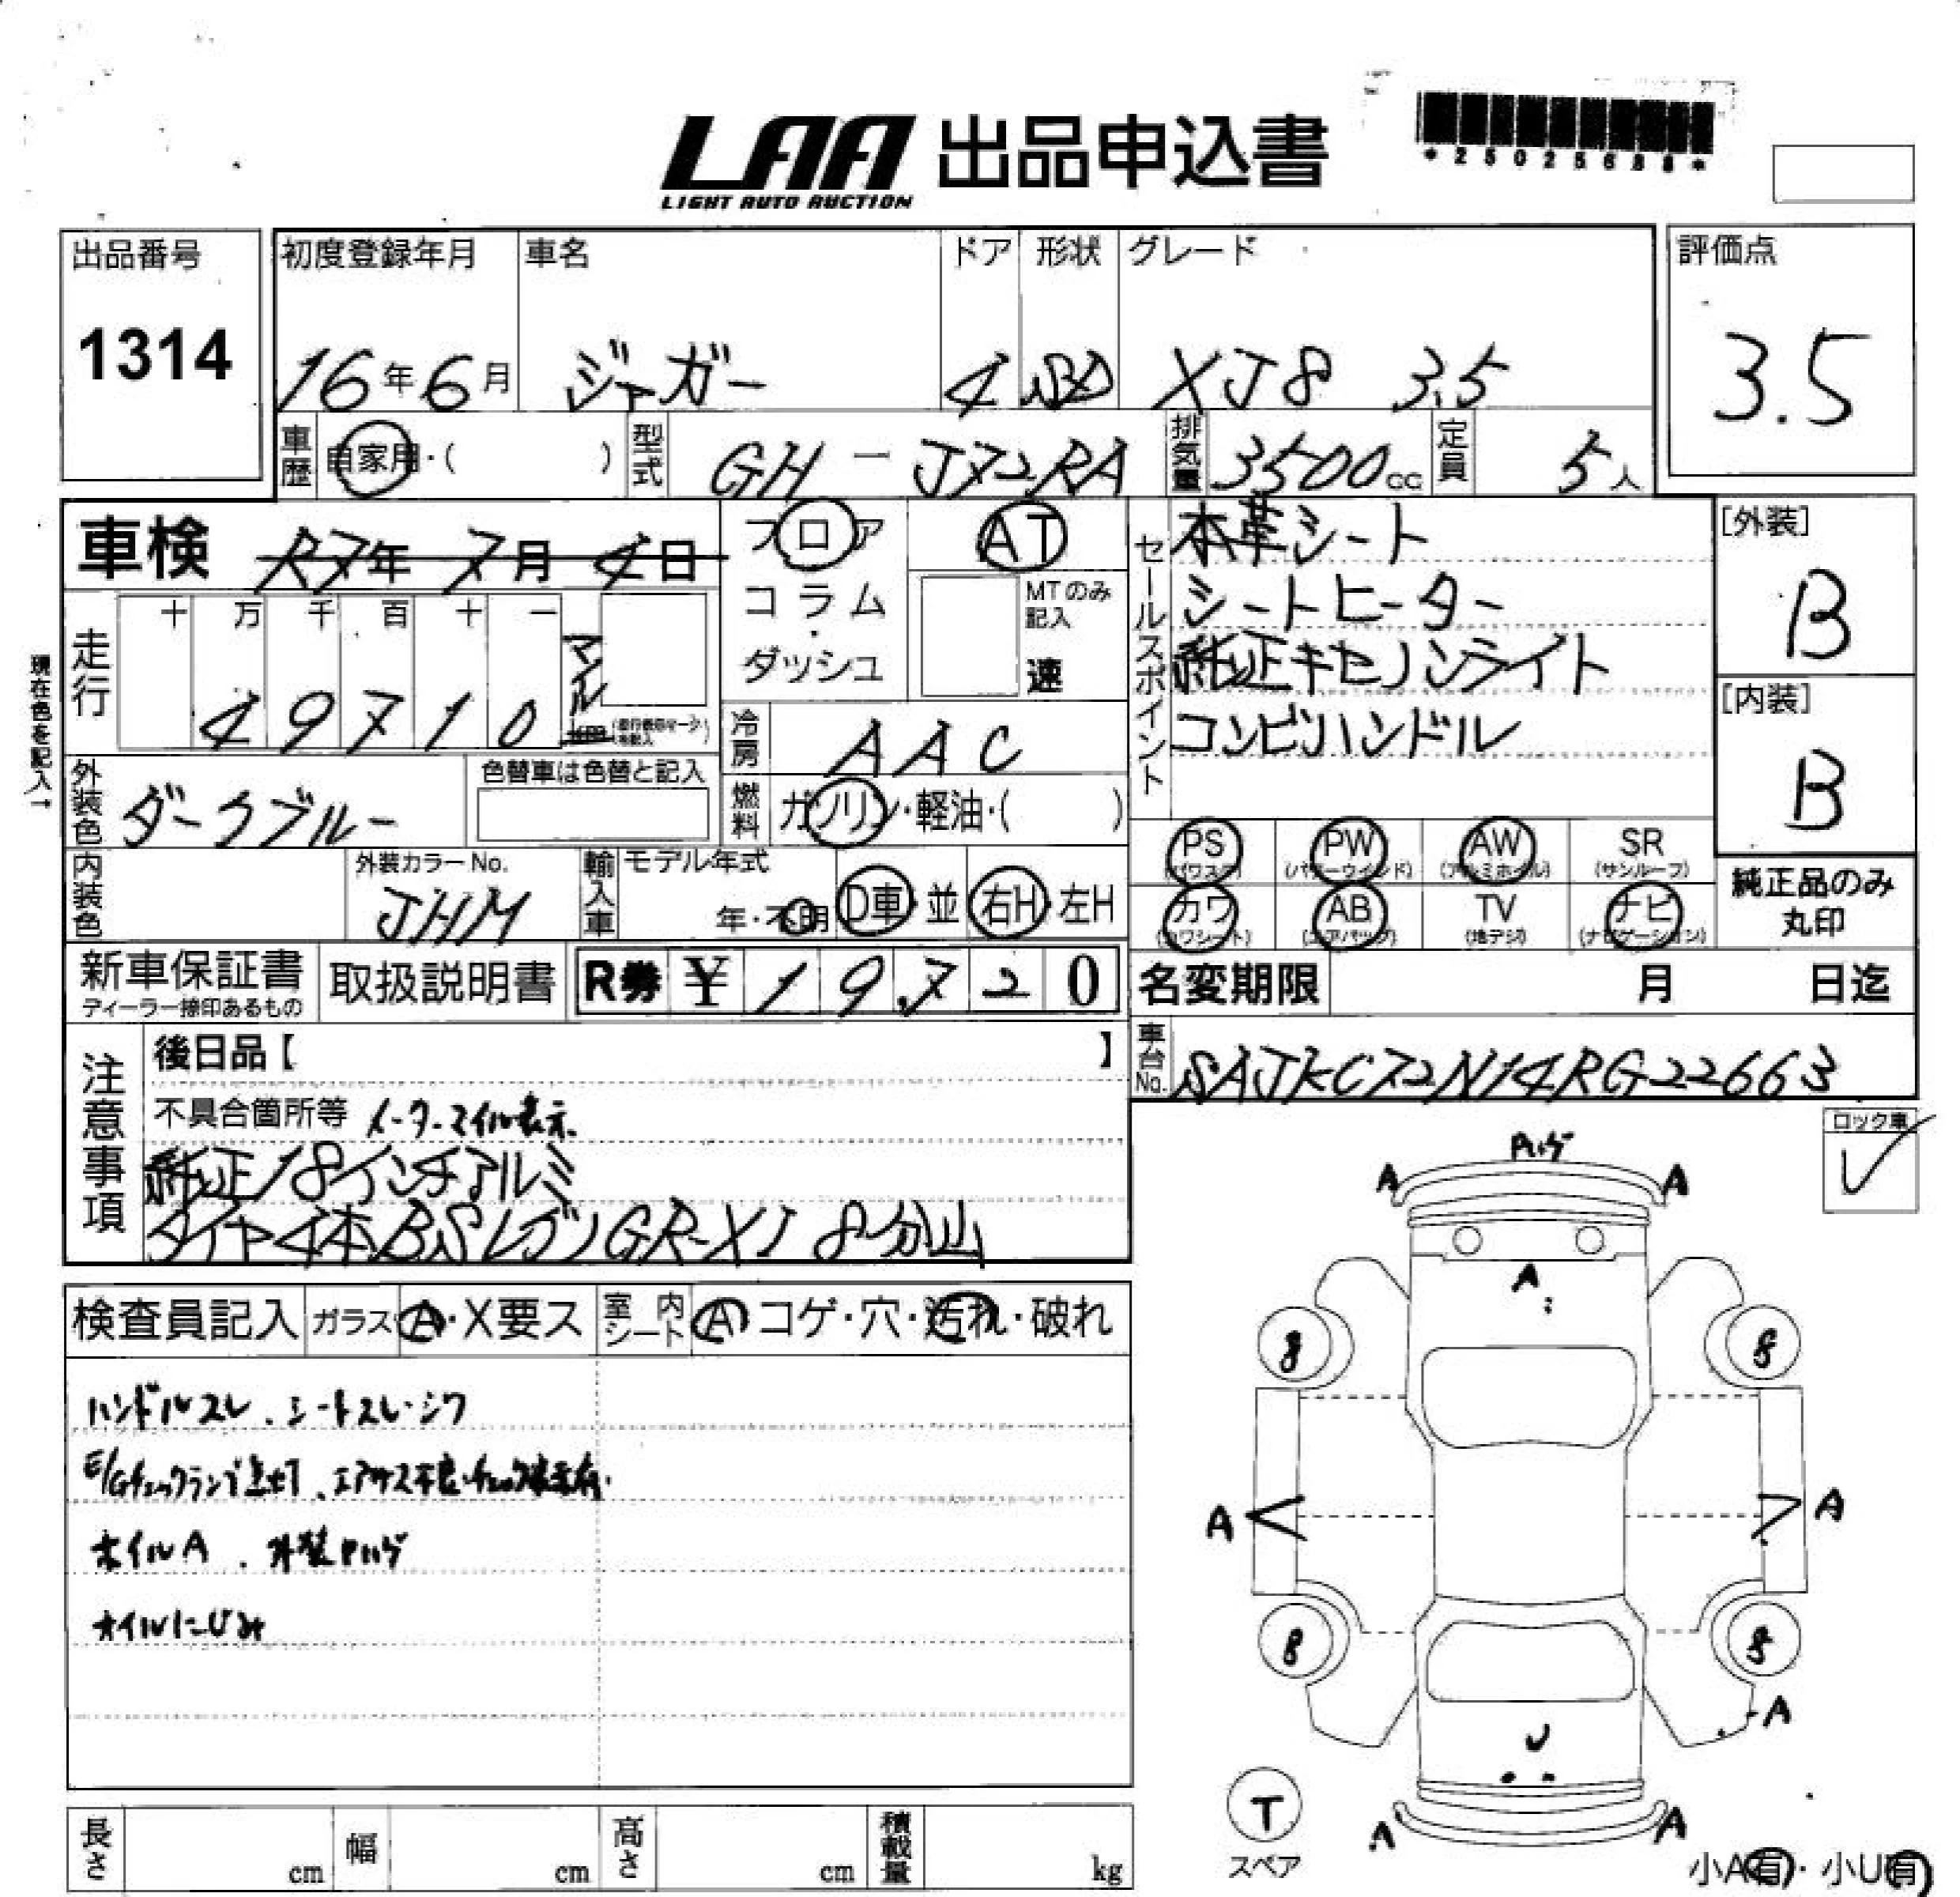 LAA 出品申込書
LIGHT AUTO AUCTION
出品番号
1314
初度登録年月
16年6月
車名
ジャガー
ドア
4
形状
SD
グレード
XJ8 3.5
評価点
3.5
車歴
自家用・( )
型式
GH-J72RA
排気量
3500cc
定員
5人
車検
R7年7月4日
フロア
コラム
・
ダッシュ
AT
MTのみ
記入
速
セールスポイント
本革シート
シートヒーター
純正キセノンライト
コンビハンドル
[外装]
B
[内装]
B
現在色を記入→
走行
十 万 千 百 十 一
49710
マイル
km
冷房
AAC
外装色
ダークブルー
色替車は色替と記入
燃料
ガソリン・軽油・( )
内装色
外装カラーNo.
JHM
輸入車
モデル年式
年・不明
D車・並
右H・左H
PS
(パワステ)
PW
(パワーウィンド)
AW
(アルミホイル)
SR
(サンルーフ)
カワ
(カワシート)
AB
(エアバッグ)
TV
(地デジ)
ナビ
(ナビゲーション)
純正品のみ
丸印
新車保証書
ディーラー捺印あるもの
取扱説明書
R券 ¥19,720
名変期限
月 日迄
車台No.
SAJKC72N14RG22663
注意事項
後日品【 】
不具合箇所等 メーターマイル表示
純正18インチアルミ
タイヤ4本BSレグノGR-XI 8分山
ロック車
検査員記入
ガラス A・X要ス
室内シート
A コゲ・穴・汚れ・破れ
ハンドルスレ、シートスレ・シワ
E/Gチェックランプ点灯、エアサス不良・チェック表示有
ホイルA、外装ハゲ
オイルにじみ
Aハゲ
A
A
A
8
8
A
A
8
8
A
U
A
A
T
スペア
小A有・小U有
長さ
cm
幅
cm
高さ
cm
積載量
kg